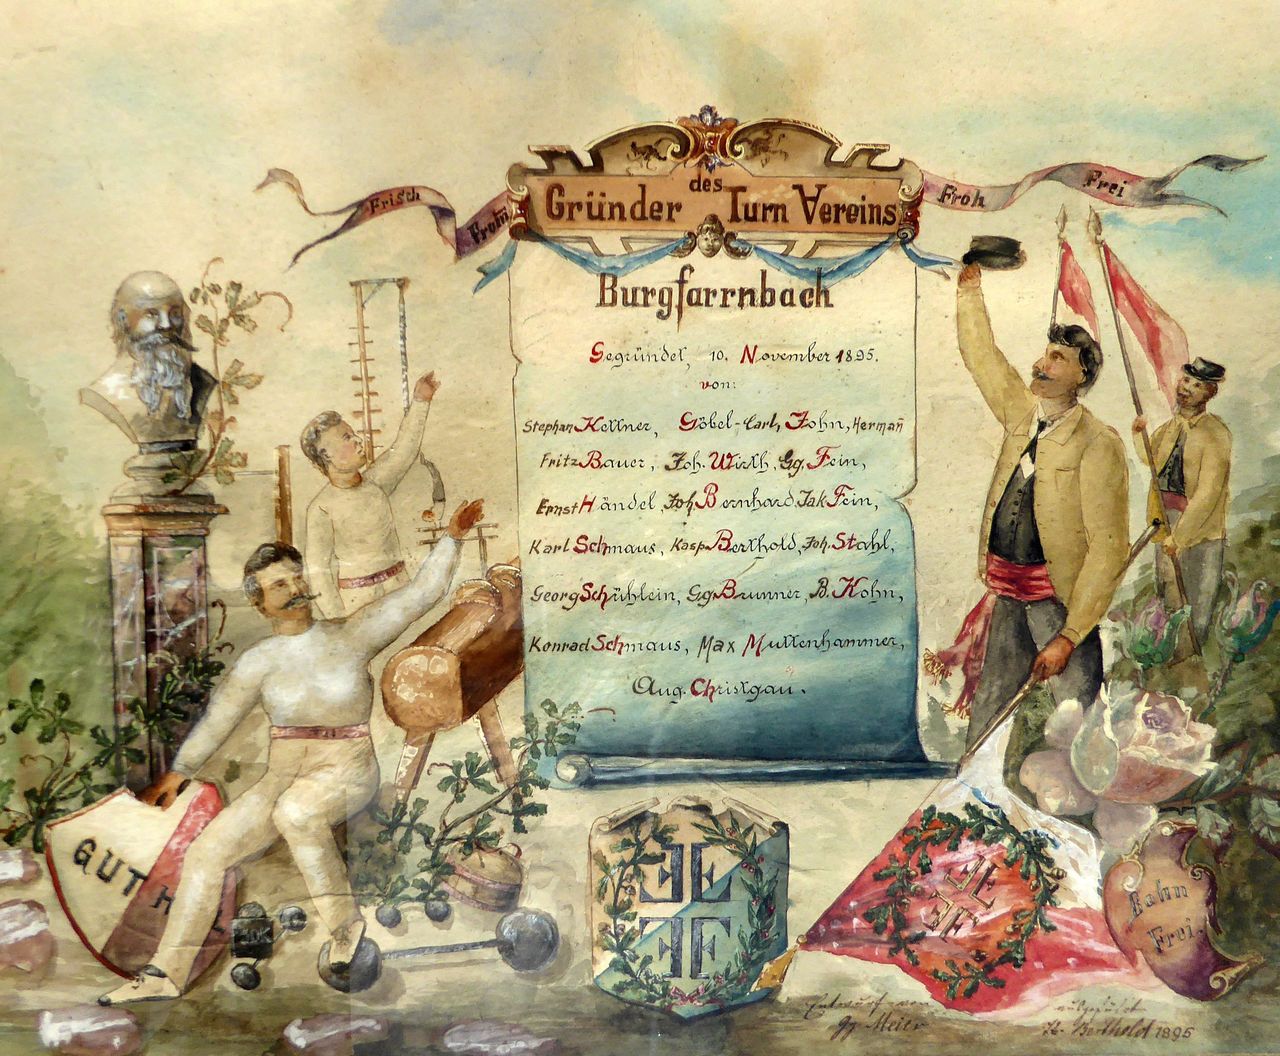 Gründer des Turn Vereins
Frisch Fromm
Froh Frei
Burgfarrnbach
Gegründet, 10. November 1895.
von:
Stephan Kellner, Göbel-Carl, John, Hermañ
Fritz Bauer, Joh. Wirth, Gg. Fein,
Ernst Händel, Joh Bernhard, Jak Fein,
Karl Schmaus, Kasp. Berthold, Joh. Stahl,
Georg Schühlein, Gg Brunner, B. Kohn,
Konrad Schmaus, Max Muttenhammer,
Aug. Christgau.
GUT H
FF
FF
Bahn
Frei.
Entwurf von
Gg. Meier
ausgeführt
Berthold 1895